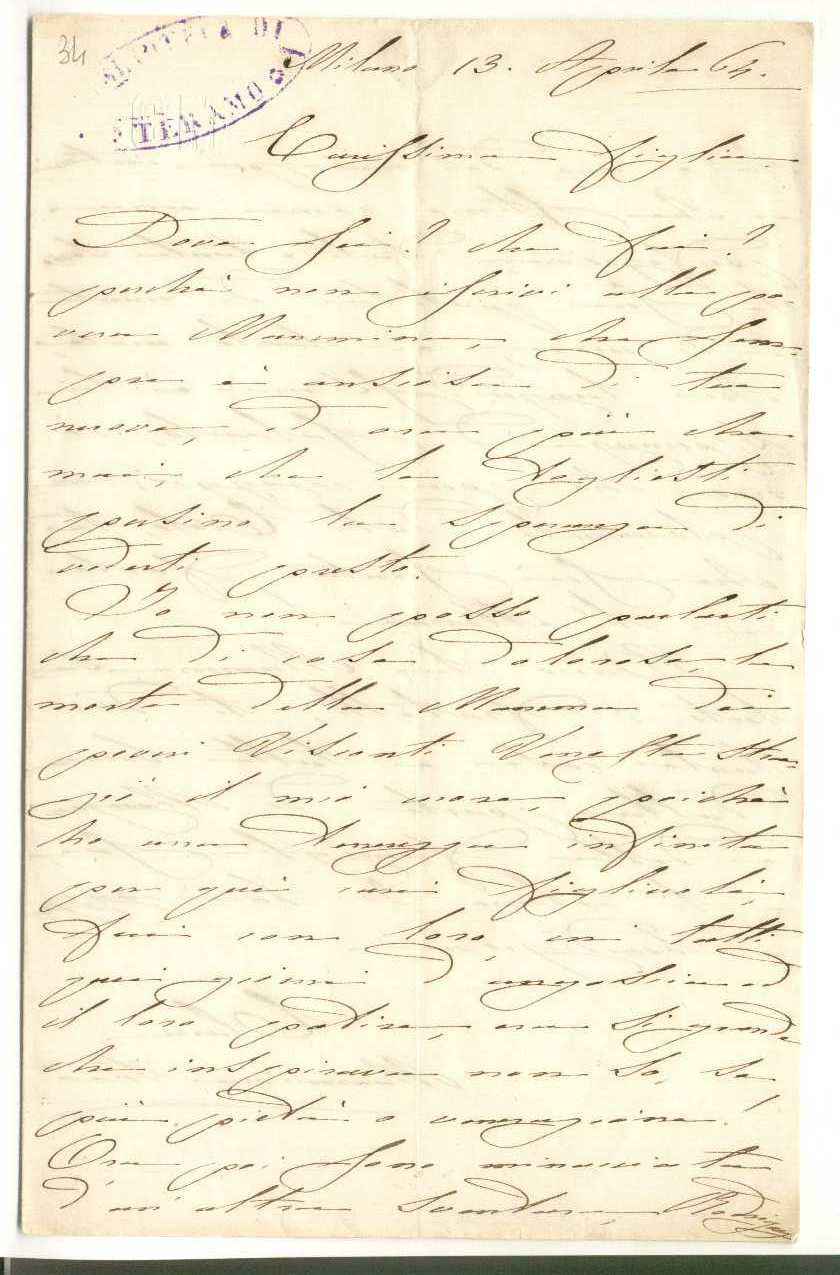 34
BIBLIOTECA DI
TERAMO
Milano 13. Aprile 64.
Carissima Figlia.
Dove sei? che fai?
perchè non iscrivi alla po-
vera Mammina, che sem-
pre è ansiosa di tue
nuove, ed ora più che
mai, che le togliesti
persino la speranza di
vederti presto.
Io non posso parlarti
che di cose dolorose, la
morte della Mamma dei
poveri Visconti Venosta stra-
ziò il mio cuore, poichè
ho una tenerezza infinita
per quei cari figliuoli,
fui con loro, in tutti
quei giorni d'angoscia ed
il loro patire, era sì grande
che inspirava non so, se
più pietà o venerazione!
Ora poi sono minacciata
d'un'altra sventura,